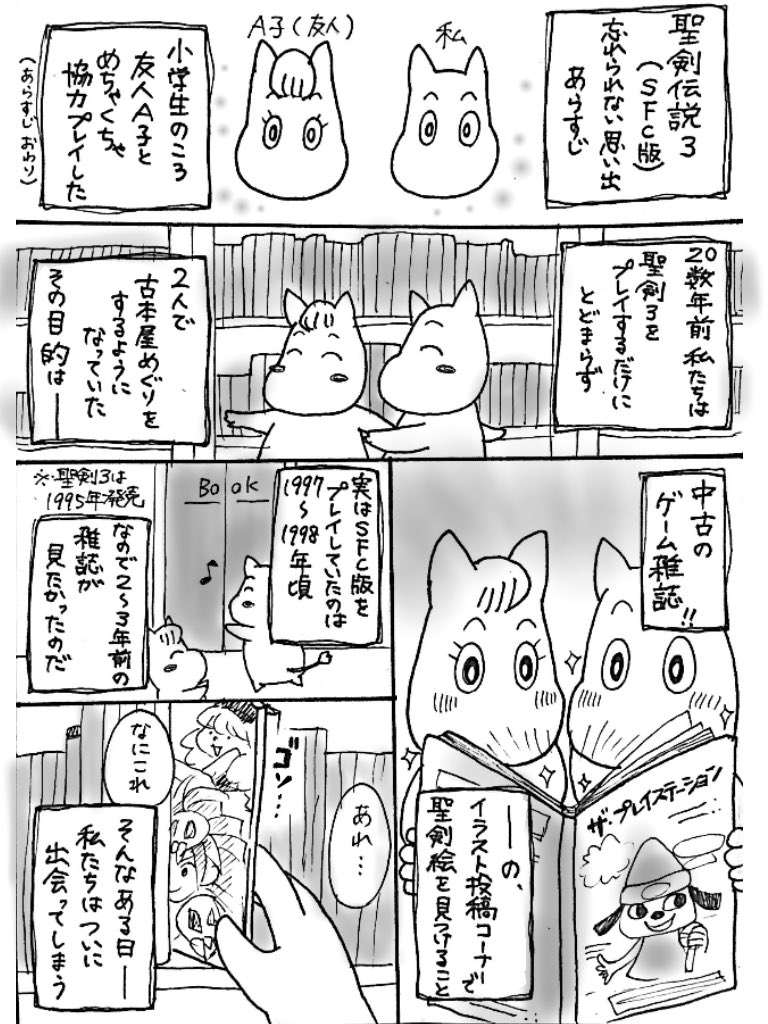 聖剣伝説3
(SFC版)
忘れられない思い出
あらすじ
私
A子(友人)
小学生のころ
友人A子と
めちゃくちゃ
協力プレイした
(あらすじおわり)
20数年前私たちは
聖剣3を
プレイするだけに
とどまらず
2人で
古本屋めぐりを
するように
なっていた
その目的は――
中古の
ゲーム雑誌!!
ザ・プレイステーション
――の、
イラスト投稿コーナーで
聖剣絵を見つけること
実はSFC版を
プレイしていたのは
1997
〜
1998
年頃
Book
※聖剣3は
1995年発売
なので2〜3年前の
雑誌が
見たかったのだ
♪
あれ…
ゴソ…
なにこれ
そんなある日―
私たちはついに
出会ってしまう